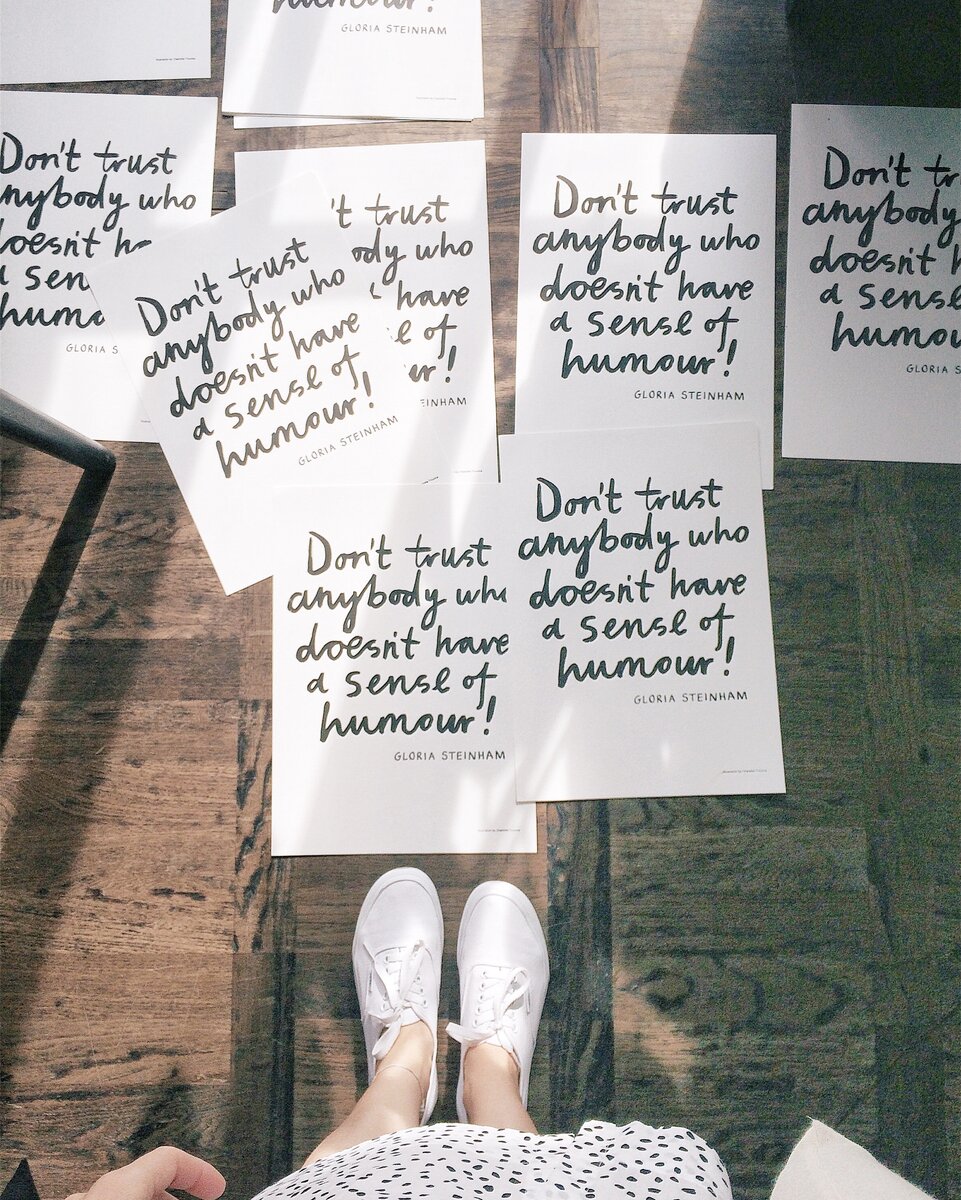 humour!
GLORIA STEINHAM
Don't trust
anybody who
doesn't
a
GLORIA
Don't trust
anybody who
doesn't have
a sense of
humour!
GLORIA STEINHAM
't trust
who
have
of
STEINHAM
Don't trust
anybody who
doesn't have
a sense of
humour!
GLORIA STEINHAM
Don't
anybody
doesn't
a sense
GLORIA
Don't trust
anybody who
doesn't have
a sense of
humour!
GLORIA STEINHAM
Don't trust
anybody who
doesn't have
a sense of
humour!
GLORIA STEINHAM